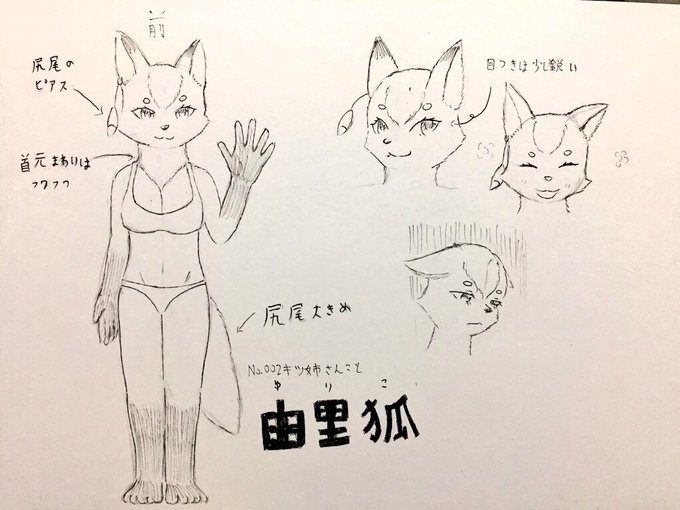 前
尻尾の
ピアス
目つきは少し鋭い
首元まわりは
フワフワ
尻尾大きめ
No.002キツ姉さんこと
ゆりこ
由里狐